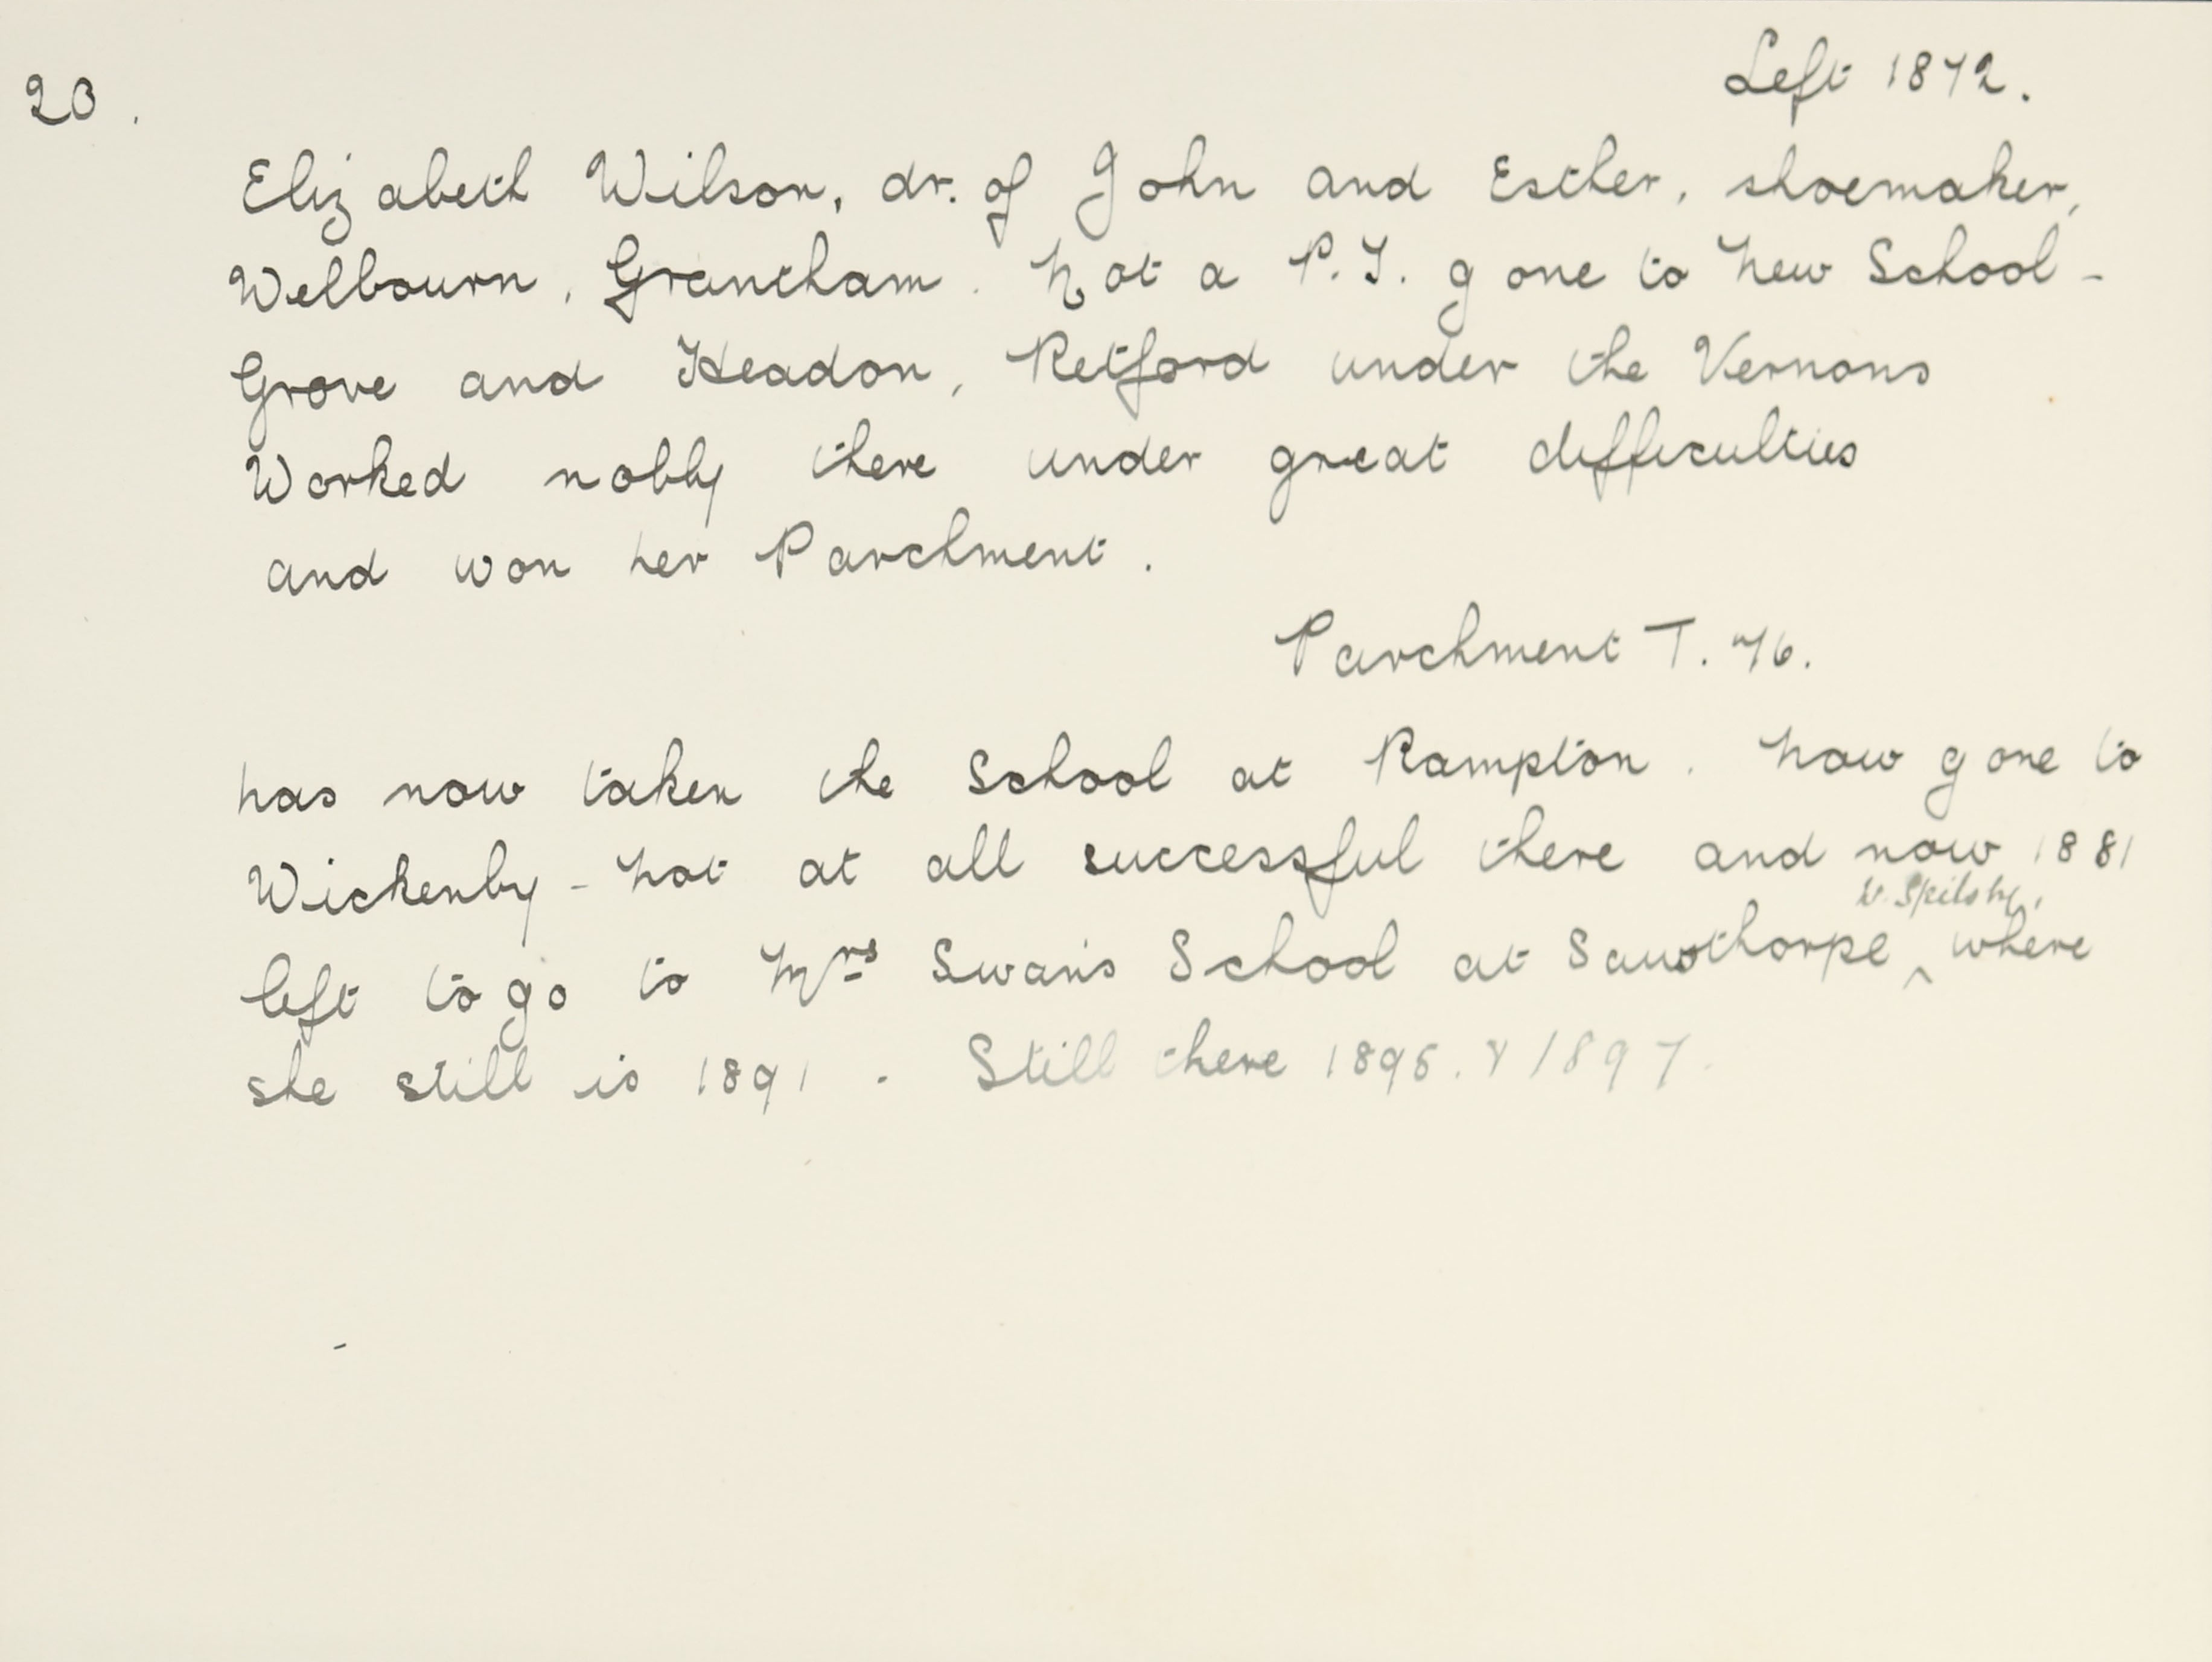 Left 1872.
20.
Elizabeth Wilson, dr. of John and Esther, shoemaker,
Welbourn, Grantham. Not a P.T. gone to New School -
Grove and Headon, Retford under the Vernons
Worked nobly there under great difficulties
and won her Parchment.
Parchment T. 76.
has now taken the School at Rampton. Now gone to
Wickenby - Not at all successful there and now 1881
Spilsby,
left to go to Mrs Swan's School at Sawsthorpe ^ where
she still is 1891 . Still there 1895. & 1897.